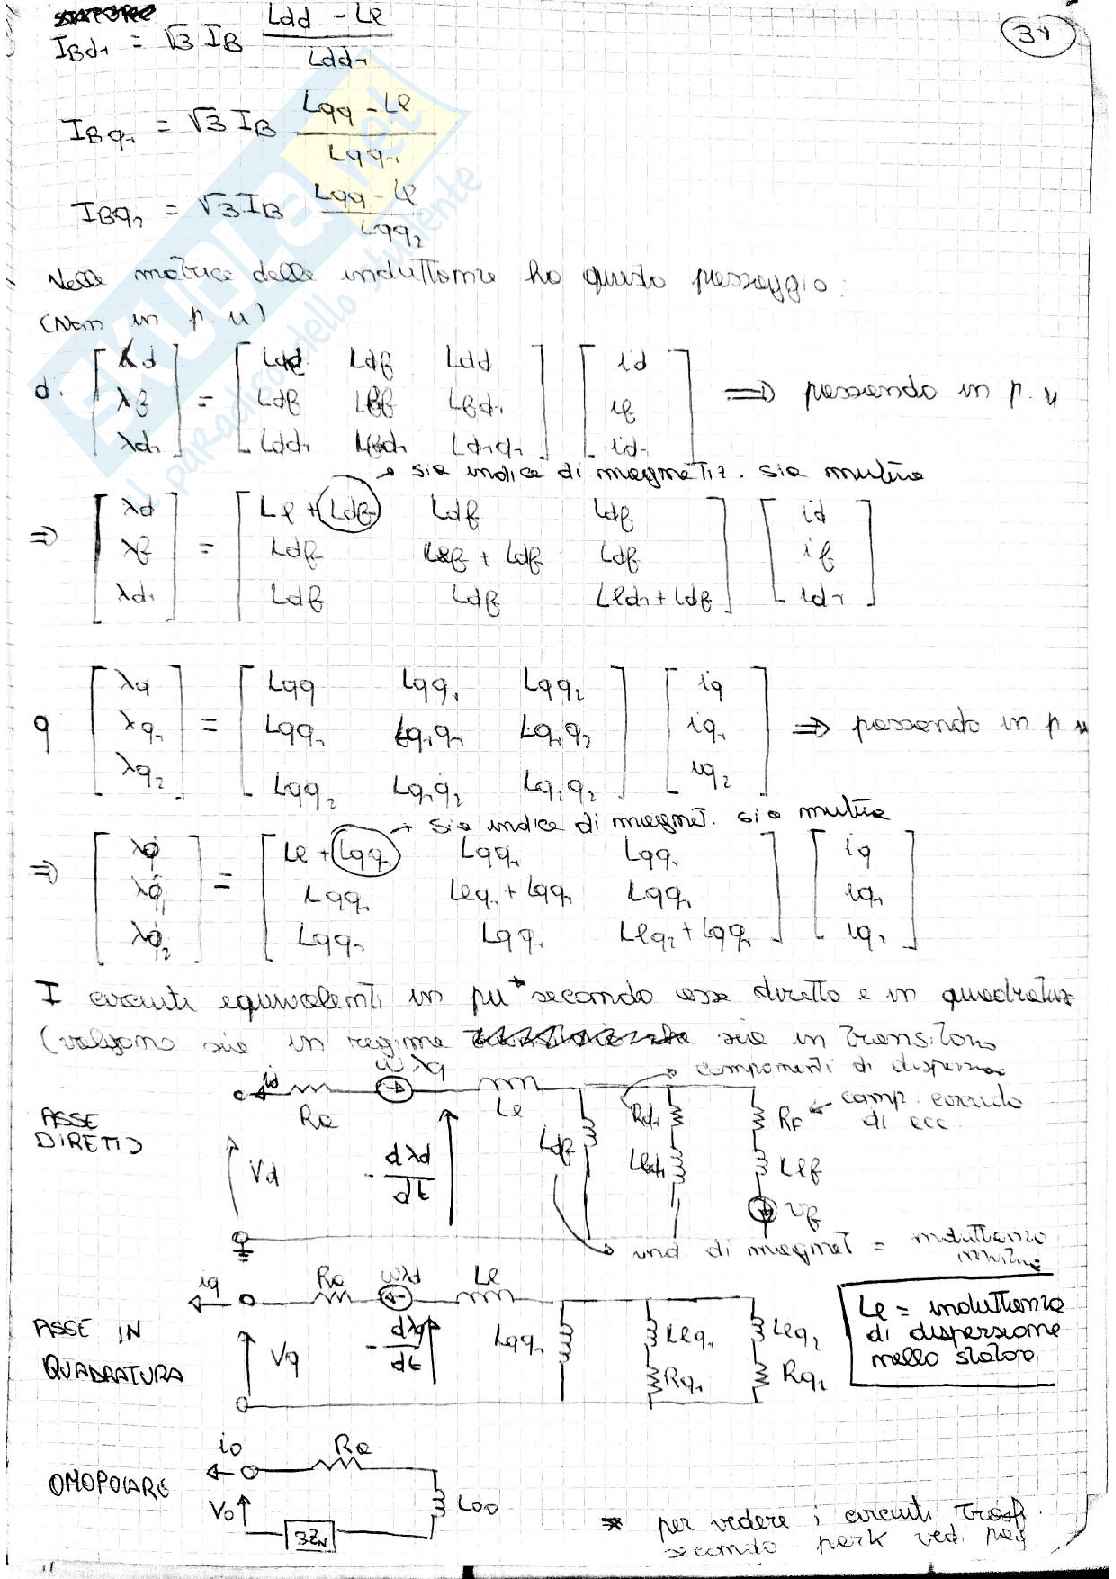 31
I_Bd1 = √3 I_B (Ldd - Lℓ) / Ldd1
I_Bq1 = √3 I_B (Lqq - Lℓ) / Lqq1
I_Bq2 = √3 I_B (Lqq - Lℓ) / Lqq2
Nelle matrice delle induttanze ho questo passaggio:
(Non in p.u)
d. [λd λf λd1] = [Ldd Ldf Ldd; Ldf Lff Lfd1; Ldd1 Lfd1 Ld1d1] [id if id1] ⇒ passando in p.u
→ sia indice di magnetiz. sia mutua
⇒ [λd λf λd1] = [Lℓ + Ldf Ldf Ldf; Ldf Lℓf + Ldf Ldf; Ldf Ldf Lℓd1 + Ldf] [id if id1]
q [λq λq1 λq2] = [Lqq Lqq1 Lqq2; Lqq1 Lq1q1 Lq1q2; Lqq2 Lq1q2 Lq1q2] [iq iq1 iq2] ⇒ passando in p u
→ sia indice di magnet. sia mutua
⇒ [λq λq1 λq2] = [Lℓ + Lqq1 Lqq1 Lqq1; Lqq1 Lℓq1 + Lqq1 Lqq1; Lqq1 Lqq1 Lℓq2 + Lqq1] [iq iq1 iq2]
I circuiti equivalenti in pu* secondo asse diretto e in quadratura
(valgono sia in regime sia in transitorio
→ componenti di dispersione
ASSE DIRETTO
id Ra ωλq Lℓ
Vd - dλd/dt Ldf Rd1 Lℓd1 RF Lℓf vf
comp. corrido di ecc.
→ ind di magnet = induttanza mutua
ASSE IN QUADRATURA
iq Ra ωλd Lℓ
Vq - dλq/dt Lqq1 Lℓq1 Rq1 Lℓq2 Rq2
Lℓ = induttanza
di dispersione
nello statore
OMOPOLARE
io Ra
Vo Loo
3ZN
* per vedere i circuiti trasf.
secondo park ved. pag
SKUOLA.net
il paradiso dello studente